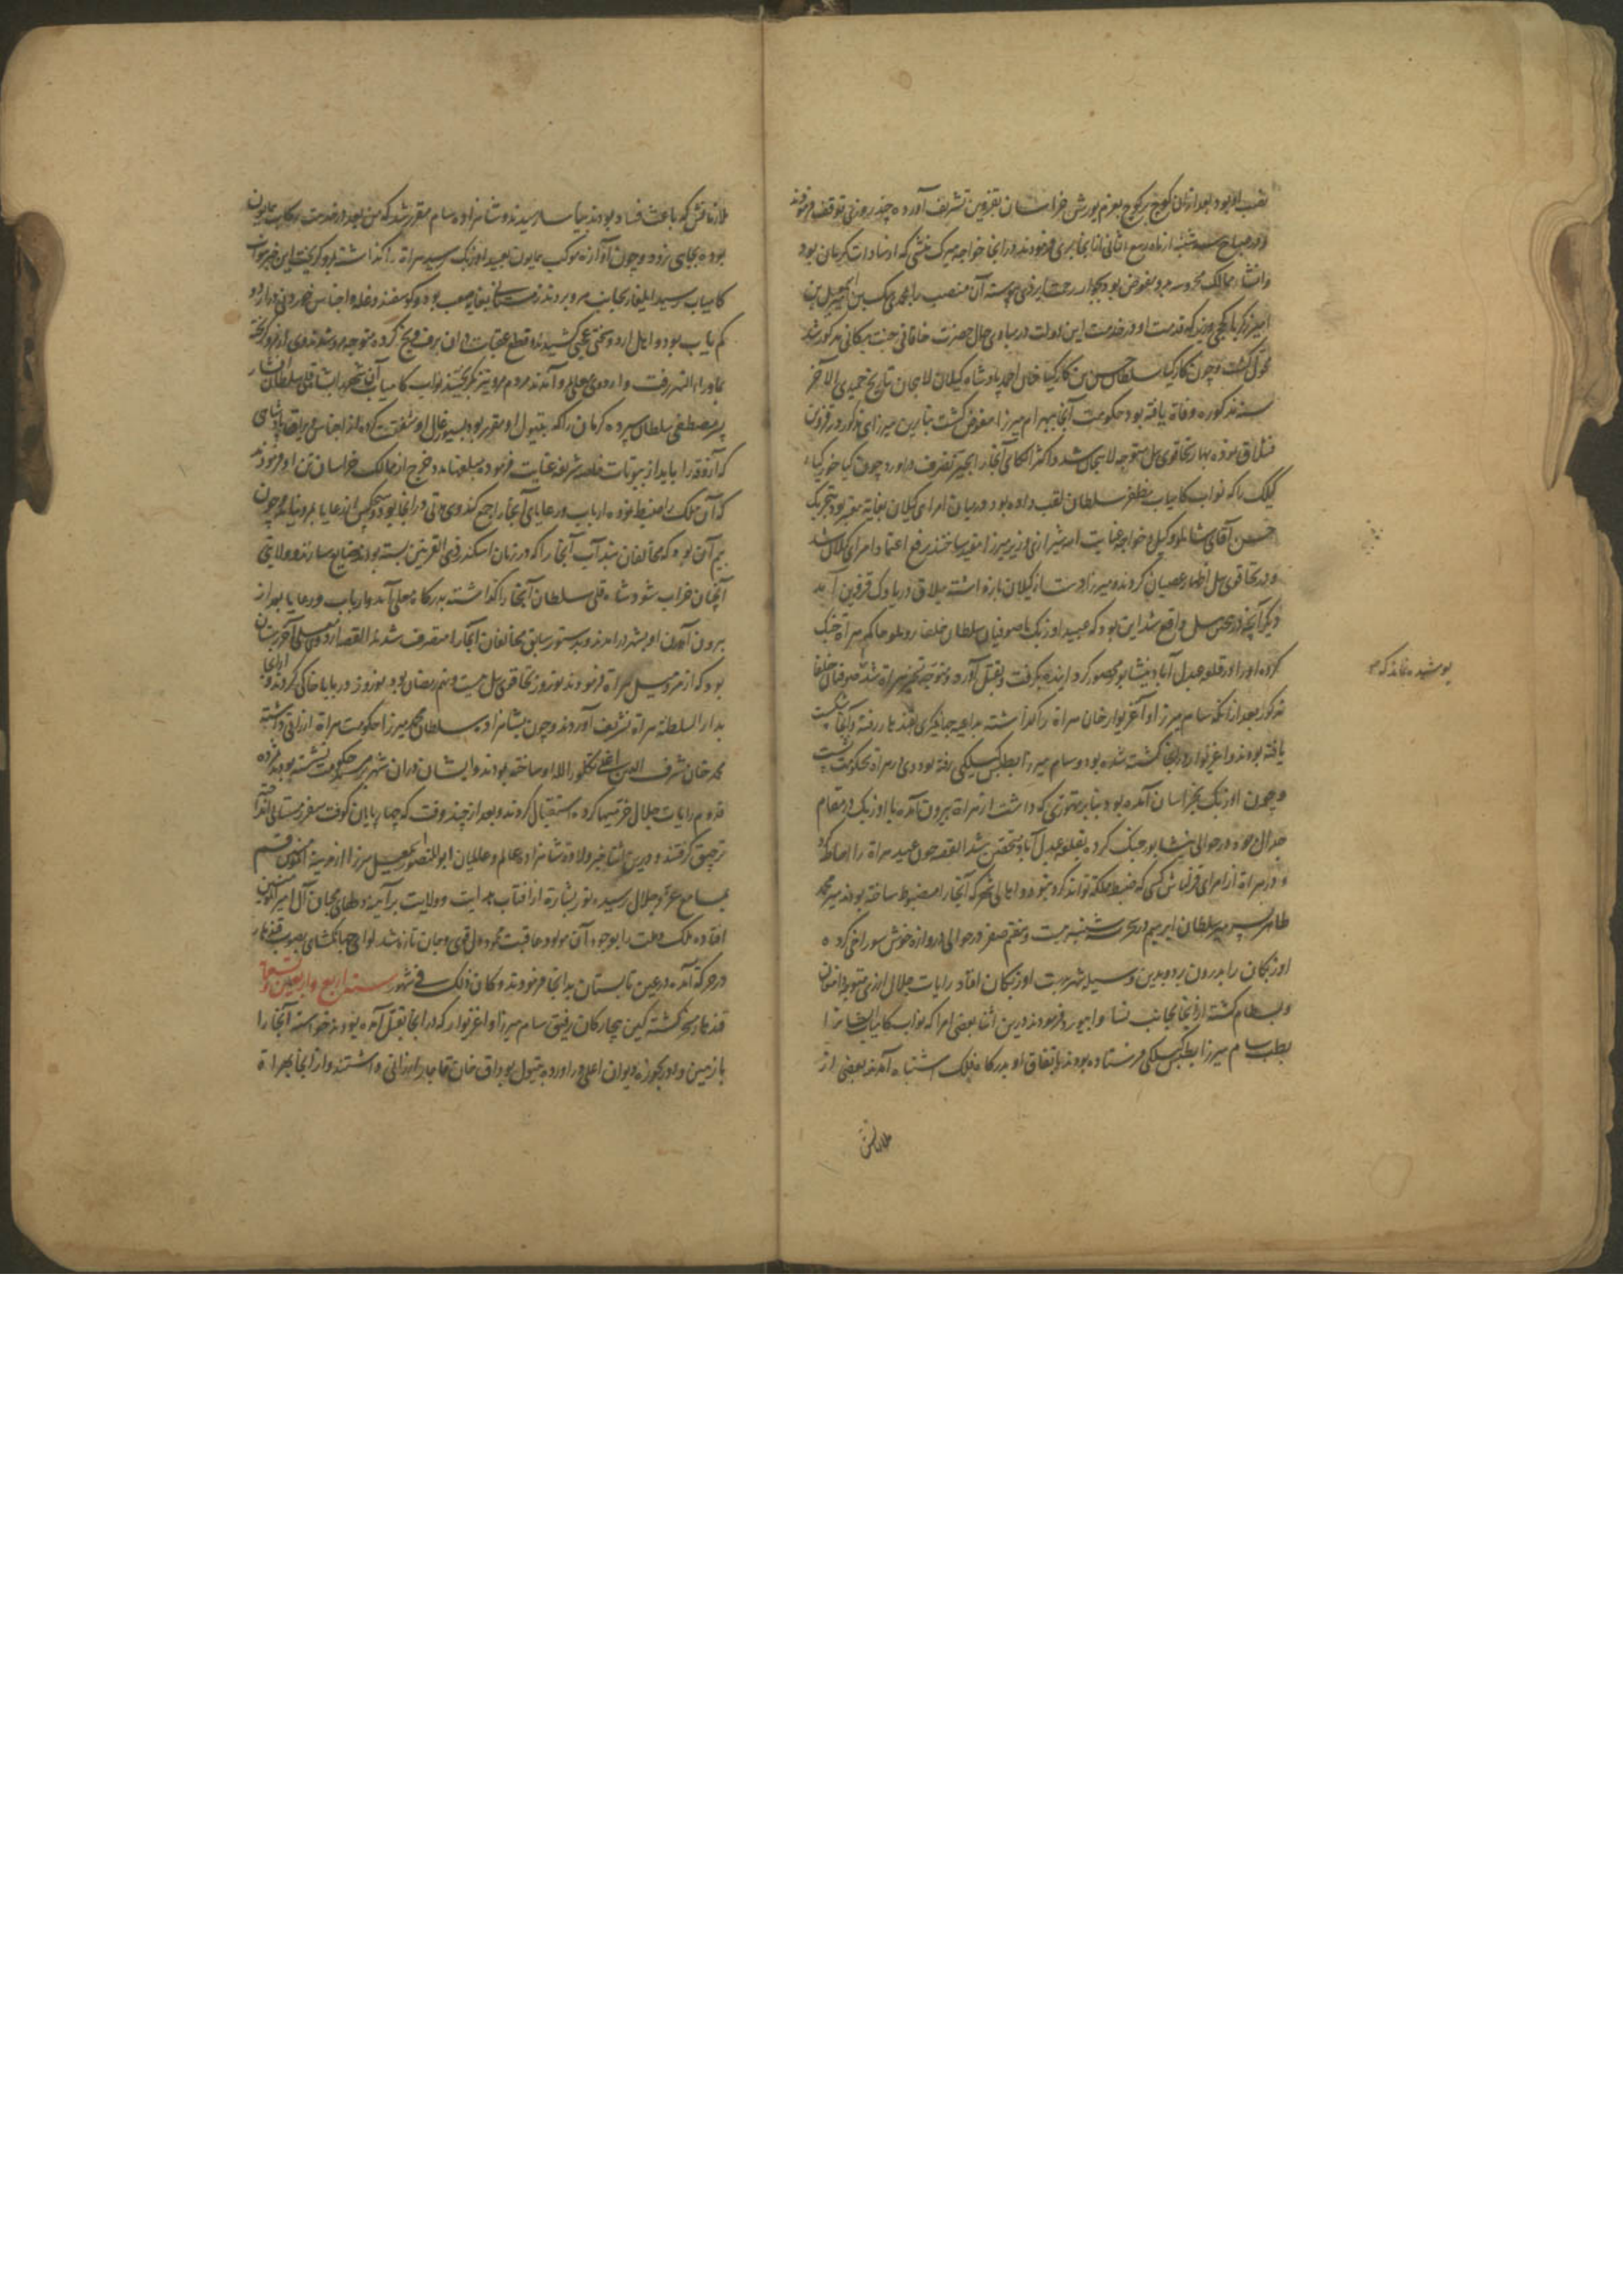 بعد ازان کوچ بر کوچ بعزم یورش خراسان بقزوین تشریف آورده چند روزی توقف فرمودند
از ماه ربیع الثانی از آنجا بری فرمودند و در آنجا خواجه میرک منشی که از سادات کرمان بود
و انشاء ممالک محروسه برو مفوض بود بجوار رحمت ایزدی پیوسته آن منصب را بمحمدی بیک بن
که قدمت او در خدمت این دولت در مبادی حال حضرت خاقانی جنت مکانی مذکور شد
کشت و چون کارکیا سلطان حسن بن کارکیا خان احمد پادشاه کیلان لاهجان بتاریخ جمیدی الاخر
سنه مذکوره وفاة یافته بود حکومت آنجا ببهرام میرزا مفوض کشت بنابرین میرزای مذکور در قزوین
قشلاق نموده بهار تخاقوی ئیل متوجه لاهجان شد و اکثر الکای آنجا را بحیز تصرف در اورد و چون کیا خور کیاء
را که نواب کامیاب مظفر سلطان لقب داده بود و در میان امرای کیلان بغایة معتبر بود بتحریک
حسن آقای شاملو وکیل و خواجه عنایت الله شیرازی وزیر میرزا مقید ساختند رفع اعتماد امرای کیلان شد
و در تخاقوی ئیل اظهار عصیان کردند و میرزا دست از کیلان باز داشته بیلاق قزوین آمد
دیکر آنچه در همین سال واقع شد این بود که عبید اوزبک با صوفیان سلطان خلیفا روملو حاکم هراة جنک
کرده او را در قلعه عبدل آباد نیشابور محصور کرد اینده بکرفت و بقتل آورده و متوجه تسخیر هراة شد صوفیان خلیفا
مذکور بعد از آنکه سام میرزا و آغزیوار خان هراة را کذاشته بداعیه جهانکیری بقندهار رفته و آنجا شکست
یافته بودند و اغزیوار در آنجا کشته شده بود و سام میرزا بطبس کیلکی رفته بود وی در هراة بحکومت نشست
و چون اوزبک بخراسان آمده بود بنابر تهوری که داشت از هراة بیرون آمده با اوزبک در مقام
جدال در حوالی نیشابور جنک کرده بقلعه عبدل آباد متحصن شد القصه چون عبید هراة را احاطه کرد
و در هراة از امرای قزلباش کسی که ضبط مملکة تواند کرد نبود و اهالی شهر که آنجا را مضبوط ساخته بودند میر محمد
طاهر پسر میر سلطان ابرهیم در سحر سه شنبه بیست و هفتم صفر در حوالی دروازه خوش سوراخی کرده
اوزبکان را بدرون برد و بدین وسیله شهر بدست اوزبکان افتاد رایات جلال از ری متوجه دامغان
و بسطام کشته از آنجا بجانب نسا و ابیورد فرمودند و درین اثنا بعضی امرا که نواب کامیاب ایشانرا
بطلب سام میرزا بطبس کیلکی فرستاده بودند باتفاق او بدرکاه فلک اشتباه آمدند بعضی از
ملازمانش
پوشیده نماند که
ملازمانش که باعث فساد بودند بیاسا رسیدند و شاهزاده سام مقرر شد که من بعد در خدمت رکاب همایون
بوده بجای نرود و چون آوازه موکب همایون بعبید اوزبک رسید هراة را کذاشته بمرو کریخت این خبر بنواب
کامیاب رسید ایلغار بجانب مرو بردند زمستان بغایة صعب بود و کوسفند و غله و اجناس خوردنی در اردو
کم یاب بود و اهل اردو سختی عجبی کشیدند و قطع عقبات و ان برف و یخ کرده متوجه مرو شدند وی از مرو کریخته
بماوراء النهر رفت و اردوی معلی و آمدند مردم مرو نیز بکریختند نواب کامیاب آنجا را بشاه قلی سلطان افشار
پسر مصطفی سلطان سپرده کرمان را که بتیول او مقرر بود بسیورغال او شفقت کرده از اجناس و یراق پادشاهی
که آذوقه را باید از بیوتات خاصه شریفه عنایت فرموده مبلغها مدد خرج از ممالک خراسان تن او فرمودند
که آن ملک را ضبط نموده ارباب و رعایای آنجا را جمع کند وی مدتی در آنجا بود و هیچکس از رعایا بمرو نیامد و چون
بیم آن بود که مخالفان بند آب آنجا را که در زمان اسکندر ذی القرنین بسته بودند ضایع سازند و ولایتی
آنچنان خراب شود شاه قلی سلطان آنجا را کذاشته بدرکاه معلی آمد و ارباب و رعایا بعد از
بیرون آمدن او بشهر در آمدند و بدستور سابق مخالفان آنجا را متصرف شدند القصه اردوی معلی آخر زمستان
بود که از مرو میل هراة فرمودند نوروز تخاقوی ئیل بیست و نهم رمضان بود نوروز در بابا خاکی کردند و از آنجا
بدار السلطنة هراة تشریف آوردند و چون بشاهزاده سلطان محمد میرزا حکومت هراة ارزانی داشته
محمد خان شرف الدین اغلی تکلو را لله او ساخته بودند و ایشان در ان شهر بر سریر حکومت نشسته بودند مژده
قدوم رایات جلال خرمیها کرده استقبال کردند و بعد از چند وقت که چهارپایان کوفت سفر زمستانی انداخته
ترقیق کرفتند و درین اثنا خبر ولادة شاهزاده عالم و عالمیان ابو المنصور اسمعیل میرزا از مدینة المؤمنین قم
بمسامع عز و جلال رسیده نور بشارة از افتاب هدایت و ولایت بر آینه دلهای محبان آل امیر المؤمنین
افتاده ملک و ملت را بوجود آن مولود عاقبت محمود دل قوی و جان تازه شد لوای جهانکشای بصوب قندهار
در حرکة آمده در عین تابستان بدانجا فرمودند و کان ذلک فی شهور سنه اربع واربعین وتسعمائه
قندهار مسخر کشته کین چهارکان رفیق سام میرزا و اغزیوار که در آنجا بقتل آمده بودند خواسته آنجا را
با زمین داور بحوزه دیوان اعلی در آورده بتیول بوداق خان قاجار ارزانی داشتند و از آنجا بهراة